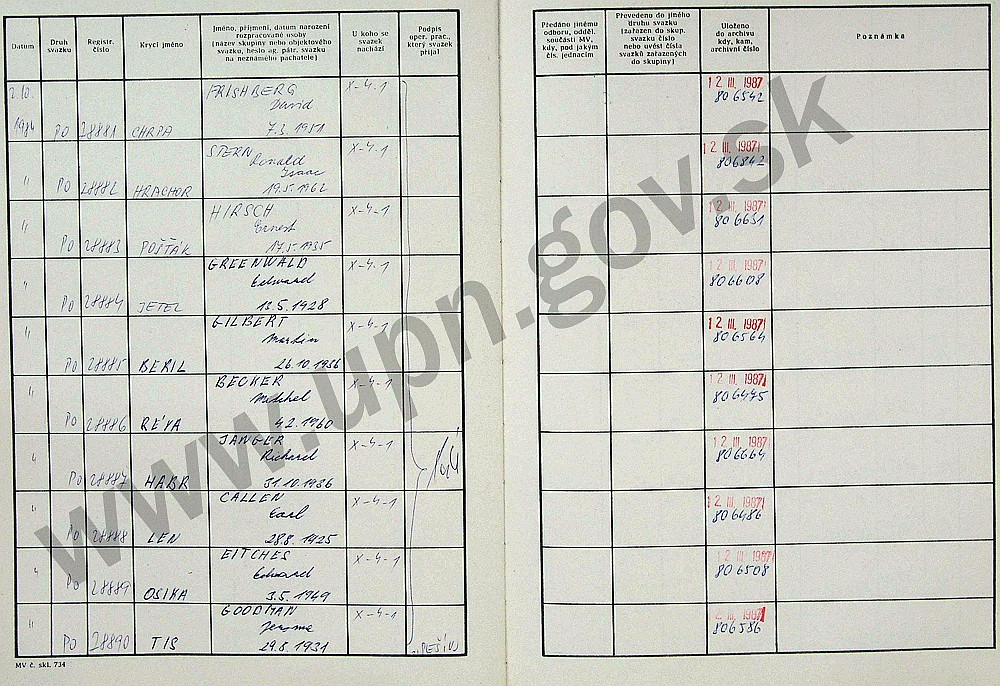 Datum
Druh svazku
Registr. číslo
Krycí jméno
Jméno, příjmení, datum narození
rozpracované osoby
(název skupiny nebo objektového
svazku, heslo ag. pátr. svazku
na neznámého pachatele)
U koho se
svazek
nachází
Podpis
oper. prac.,
který svazek
přijal
Předáno jinému
odboru, odděl.
součásti MV,
kdy, pod jakým
čís. jednacím
Převedeno do jiného
druhu svazku
(zařazen do skup.
svazku číslo
nebo uvést čísla
svazků zařazených
do skupiny)
Uloženo
do archivu
kdy, kam,
archivní číslo
Poznámka
2.10. FRISHBERG X-4-1 12. III. 1987
David 806542
1984 PO 28881 CHRPA 7.3.1951
STERN X-4-1 12. III. 1987
Ronald 806842
Isaac
" PO 28882 HRACHOR 19.5.1962
HIRSCH X-4-1 12. III. 1987
Ernest 806631
" PO 28883 POŠŤÁK 17.5.1935
GREENWALD X-4-1 12. III. 1987
Edward 806608
" PO 28884 JETEL 13.5.1928
GILBERT X-4-1 12. III. 1987
Martin 806564
" PO 28885 BERIL 26.10.1936
BECKER X-4-1 12. III. 1987
Mitchel 806445
" PO 28886 RÉVA 4.2.1960
JANGER X-4-1 12. III. 1987
Richard 806664
" PO 28887 HABR 31.10.1936
CALLEN X-4-1 12. III. 1987
Earl 806486
" PO 28888 LEN 28.8.1925
EITCHES X-4-1 12. III. 1987
Edward 806508
" PO 28889 OSIKA 3.5.1949
GOODMAN X-4-1 2. III. 1987
Jerome 806586
" PO 28890 TIS 29.8.1931
MV č. skl. 734
www.upn.gov.sk